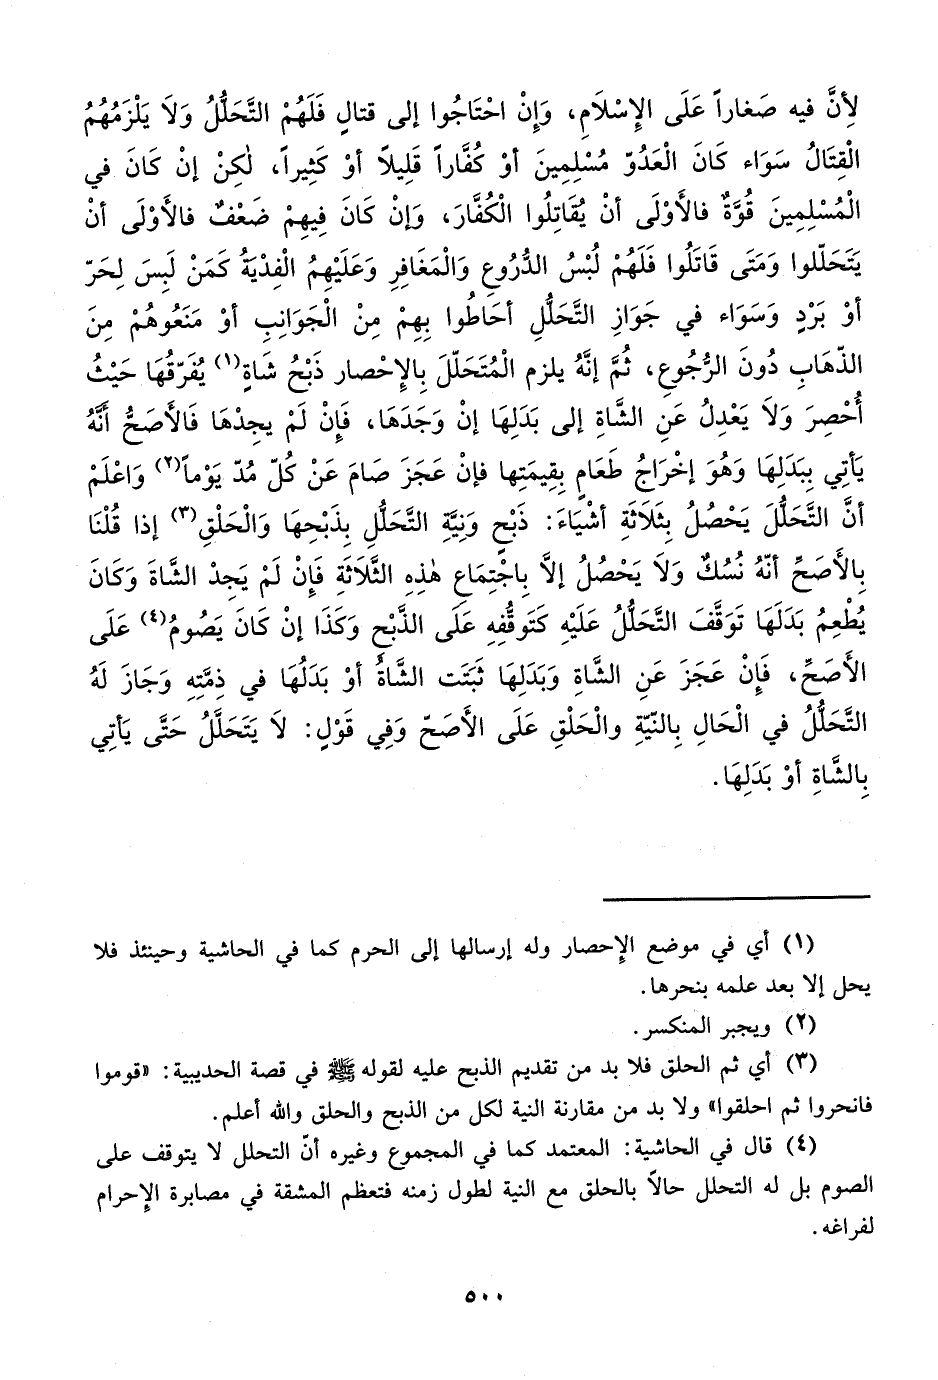 لِأنَّ فيه صَغاراً عَلَى الإِسْلَامِ، وَإِنْ احْتَاجُوا إلى قتالٍ فَلَهُمْ التَّحَلُّلُ وَلَا يَلْزَمُهُمُ
الْقِتَالُ سَوَاء كَانَ الْعَدُوّ مُسْلِمِينَ أوْ كُفَّاراً قَلِيلاً أوْ كَثِيراً، لٰكِنْ إنْ كَانَ في
الْمُسْلِمِينَ قُوَّةٌ فالأَوْلَى أنْ يُقَاتِلُوا الْكُفَّارَ، وَإنْ كَانَ فِيهِمْ ضَعْفٌ فالأَوْلَى أنْ
يَتَحَلّلوا وَمَتَى قَاتَلُوا فَلَهُمْ لُبْسُ الدُّرُوعِ وَالْمَغَافِرِ وَعَلَيْهِمُ الْفِدْيَةُ كَمَنْ لَبِسَ لِحَرّ
أوْ بَرْدٍ وَسَوَاء في جَوَازِ التَّحَلُّلِ أحَاطُوا بِهِمْ مِنْ الْجَوَانِبِ أوْ مَنَعُوهُمْ مِنَ
الذّهَابِ دُونَ الرُّجُوعِ، ثُمَّ إنَّهُ يلزم الْمُتَحَلّلَ بِالإِحْصار ذَبْحُ شَاةٍ(١) يُفَرّقُهَا حَيْثُ
أُحْصِرَ وَلَا يَعْدِلُ عَنِ الشَّاةِ إلى بَدَلِهَا إنْ وَجَدَهَا، فَإِنْ لَمْ يجِدْهَا فَالأَصَحُّ أنَّهُ
يَأتِي بِبَدَلِهَا وَهُوَ إخْرَاجُ طَعَامٍ بِقِيمَتِها فإنْ عَجَزَ صَامَ عَنْ كُلّ مُدّ يَوْماً(٢) وَاعْلَمْ
أنَّ التَّحَلُّلَ يَحْصُلُ بِثَلَاثَةِ أشْيَاءَ: ذَبْحٍ وَنِيَّةِ التَّحَلُّلِ بِذَبْحِهَا وَالْحَلْقِ(٣) إذا قُلْنَا
بِالأَصَحِّ أنّهُ نُسُكٌ وَلَا يَحْصُلُ إلاَّ بِاجْتِمَاعِ هٰذِهِ الثَّلَاثَةِ فَإِنْ لَمْ يَجِدْ الشَّاةَ وَكَانَ
يُطْعِمُ بَدَلَهَا تَوَقَّفَ التَّحَلُّلُ عَلَيْهِ كَتَوقُّفِهِ عَلَى الذَّبْحِ وَكَذَا إن كَانَ يَصُومُ(٤) عَلَى
الأَصَحِّ، فَإِنْ عَجَزَ عَنِ الشَّاةِ وَبَدَلِهَا ثَبَتَت الشَّاةُ أوْ بَدَلُهَا في ذِمَّتِهِ وَجَازَ لَهُ
التَّحَلُّلُ في الْحَالِ بِالنّيَّةِ والْحَلْقِ عَلَى الأَصَحّ وَفِي قَوْلٍ: لَا يَتَحَلَّلُ حَتَّى يَأتِي
بِالشَّاةِ أوْ بَدَلِهَا.
(١) أي في موضع الإِحصار وله إرسالها إلى الحرم كما في الحاشية وحينئذ فلا
يحل إلا بعد علمه بنحرها.
(٢) ويجبر المنكسر.
(٣) أي ثم الحلق فلا بد من تقديم الذبح عليه لقوله ﷺ في قصة الحديبية: «قوموا
فانحروا ثم احلقوا» ولا بد من مقارنة النية لكل من الذبح والحلق والله أعلم.
(٤) قال في الحاشية: المعتمد كما في المجموع وغيره أنّ التحلل لا يتوقف على
الصوم بل له التحلل حالاً بالحلق مع النية لطول زمنه فتعظم المشقة في مصابرة الإِحرام
لفراغه.
٥٠٠